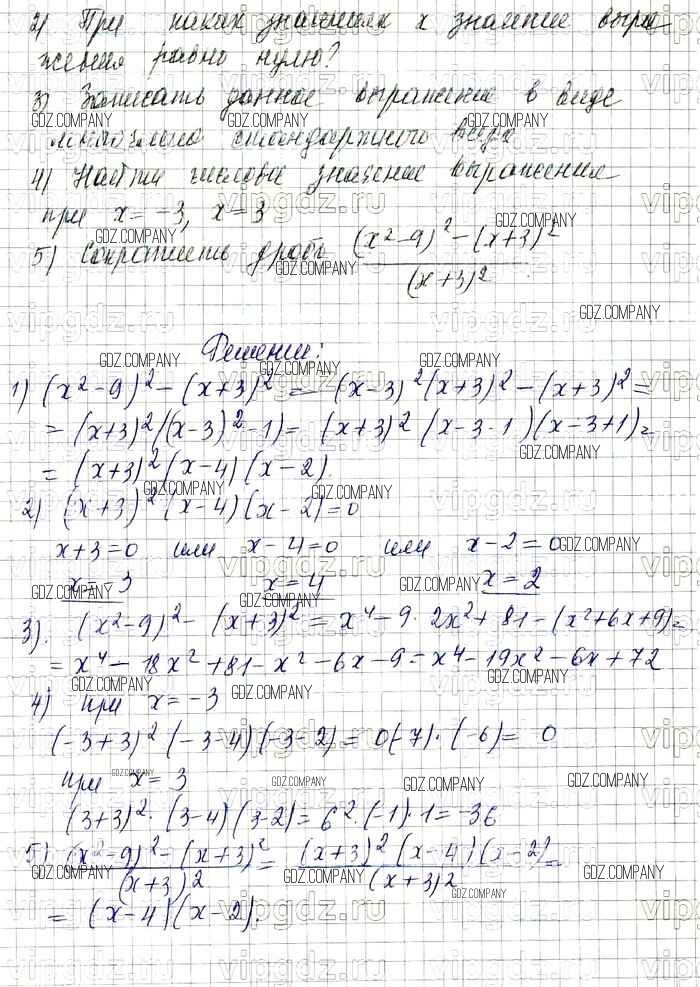 2) При каких значениях x значение выра
жения равно нулю?
3) Записать данное выражение в виде
многочлена стандартного вида
4) Найти числовое значение выражения
при x = -3, x = 3
5) Сократить дробь ((x²-9)² - (x+3)²)/(x+3)²
Решение:
1) (x²-9)² - (x+3)² = (x-3)²(x+3)² - (x+3)² =
= (x+3)²((x-3)² - 1) = (x+3)² (x-3-1)(x-3+1) =
= (x+3)²(x-4)(x-2).
2) (x+3)²(x-4)(x-2) = 0
x+3=0 или x-4=0 или x-2=0
x=-3 x=4 x=2
3). (x²-9)² - (x+3)² = x⁴ - 9·2x² + 81 - (x²+6x+9) =
= x⁴ - 18x² + 81 - x² - 6x - 9 = x⁴ - 19x² - 6x + 72
4) при x = -3
(-3+3)² (-3-4)(-3-2) = 0(-7)·(-6) = 0
при x = 3
(3+3)²·(3-4)(3-2) = 6²·(-1)·1 = -36
5) ((x²-9)² - (x+3)²)/(x+3)² = ((x+3)²(x-4)(x-2))/(x+3)² =
= (x-4)(x-2).